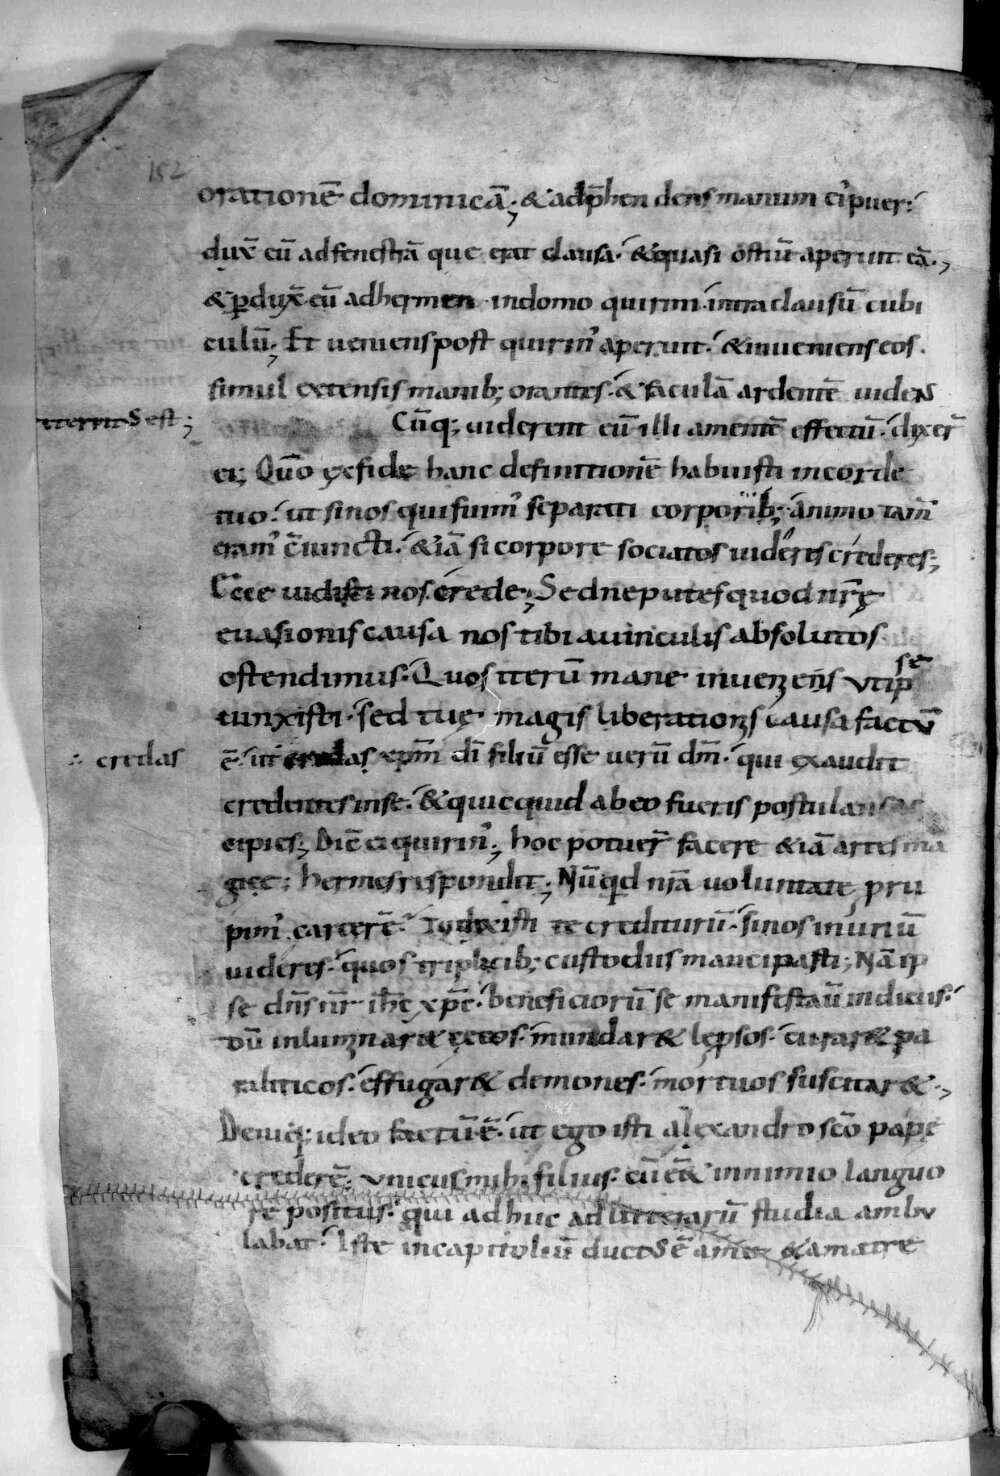 152
orationē dominicā; & adp̄hen dens manum ei' puer.
dux̄ eū ad fenestrā que erat clausa. & quasi ostiū aperuit eā.,
& ꝑdux̄ eū ad hermen in domo quirini intra clausū cubi
culū; Et ueniens post quirin' aperuit. & inueniens eos.
simul extensis manib; orantes. & faculā ardentē uidens
territus est;
Cūq; uiderent eū illi amentē effectū. dixer̄
ei; Quō ex fide hanc definitionē habuisti in corde
tuo. ut si nos qui fuim' separati corporib; animo tam̄
eram' c̄iuncti. & iā si corpore sociatos uideres crederes;
Ecce uidisti nos crede; Sed ne putes quod nr̄ę
euasionis causa nos tibi a uinculis absolutos
ostendimus. Quos iterū mane inuenens ut ipse
iunxisti. sed tuę magis liberationis causa factū
ē. ut credas xp̄m di filiū esse uerū dm̄. qui exaudit
∴ credas
credentes in se. & quicquid ab eo fueris postulans ac
cipies; Dic̄ ei quirin'; hoc potuer̄ facere & iā artes ma
gice; hermes respondit; Nūqd nr̄ā uoluntate pru
pim' carcerē. Tu dixisti te crediturū. si nos in unū
uideres. quos triplicib; custodiis mancipasti; Nā ip
se dn̄s nr̄ ihc̄ xp̄c. beneficiorū se manifestauit indiciis.
dū inluminar& cecos. mundar& lęprosos. curar& pa
raliticos. effugar& demones. mortuos suscitar&.,
Deniq; ideo factū ē. ut ego isti alexandro scō pape
crederē; unicus mihi filius. cū ēet in nimio languo
re positus. qui adhuc ad litterarū studia ambu
labat. Iste in capitoliū ductus ē a me & a matre